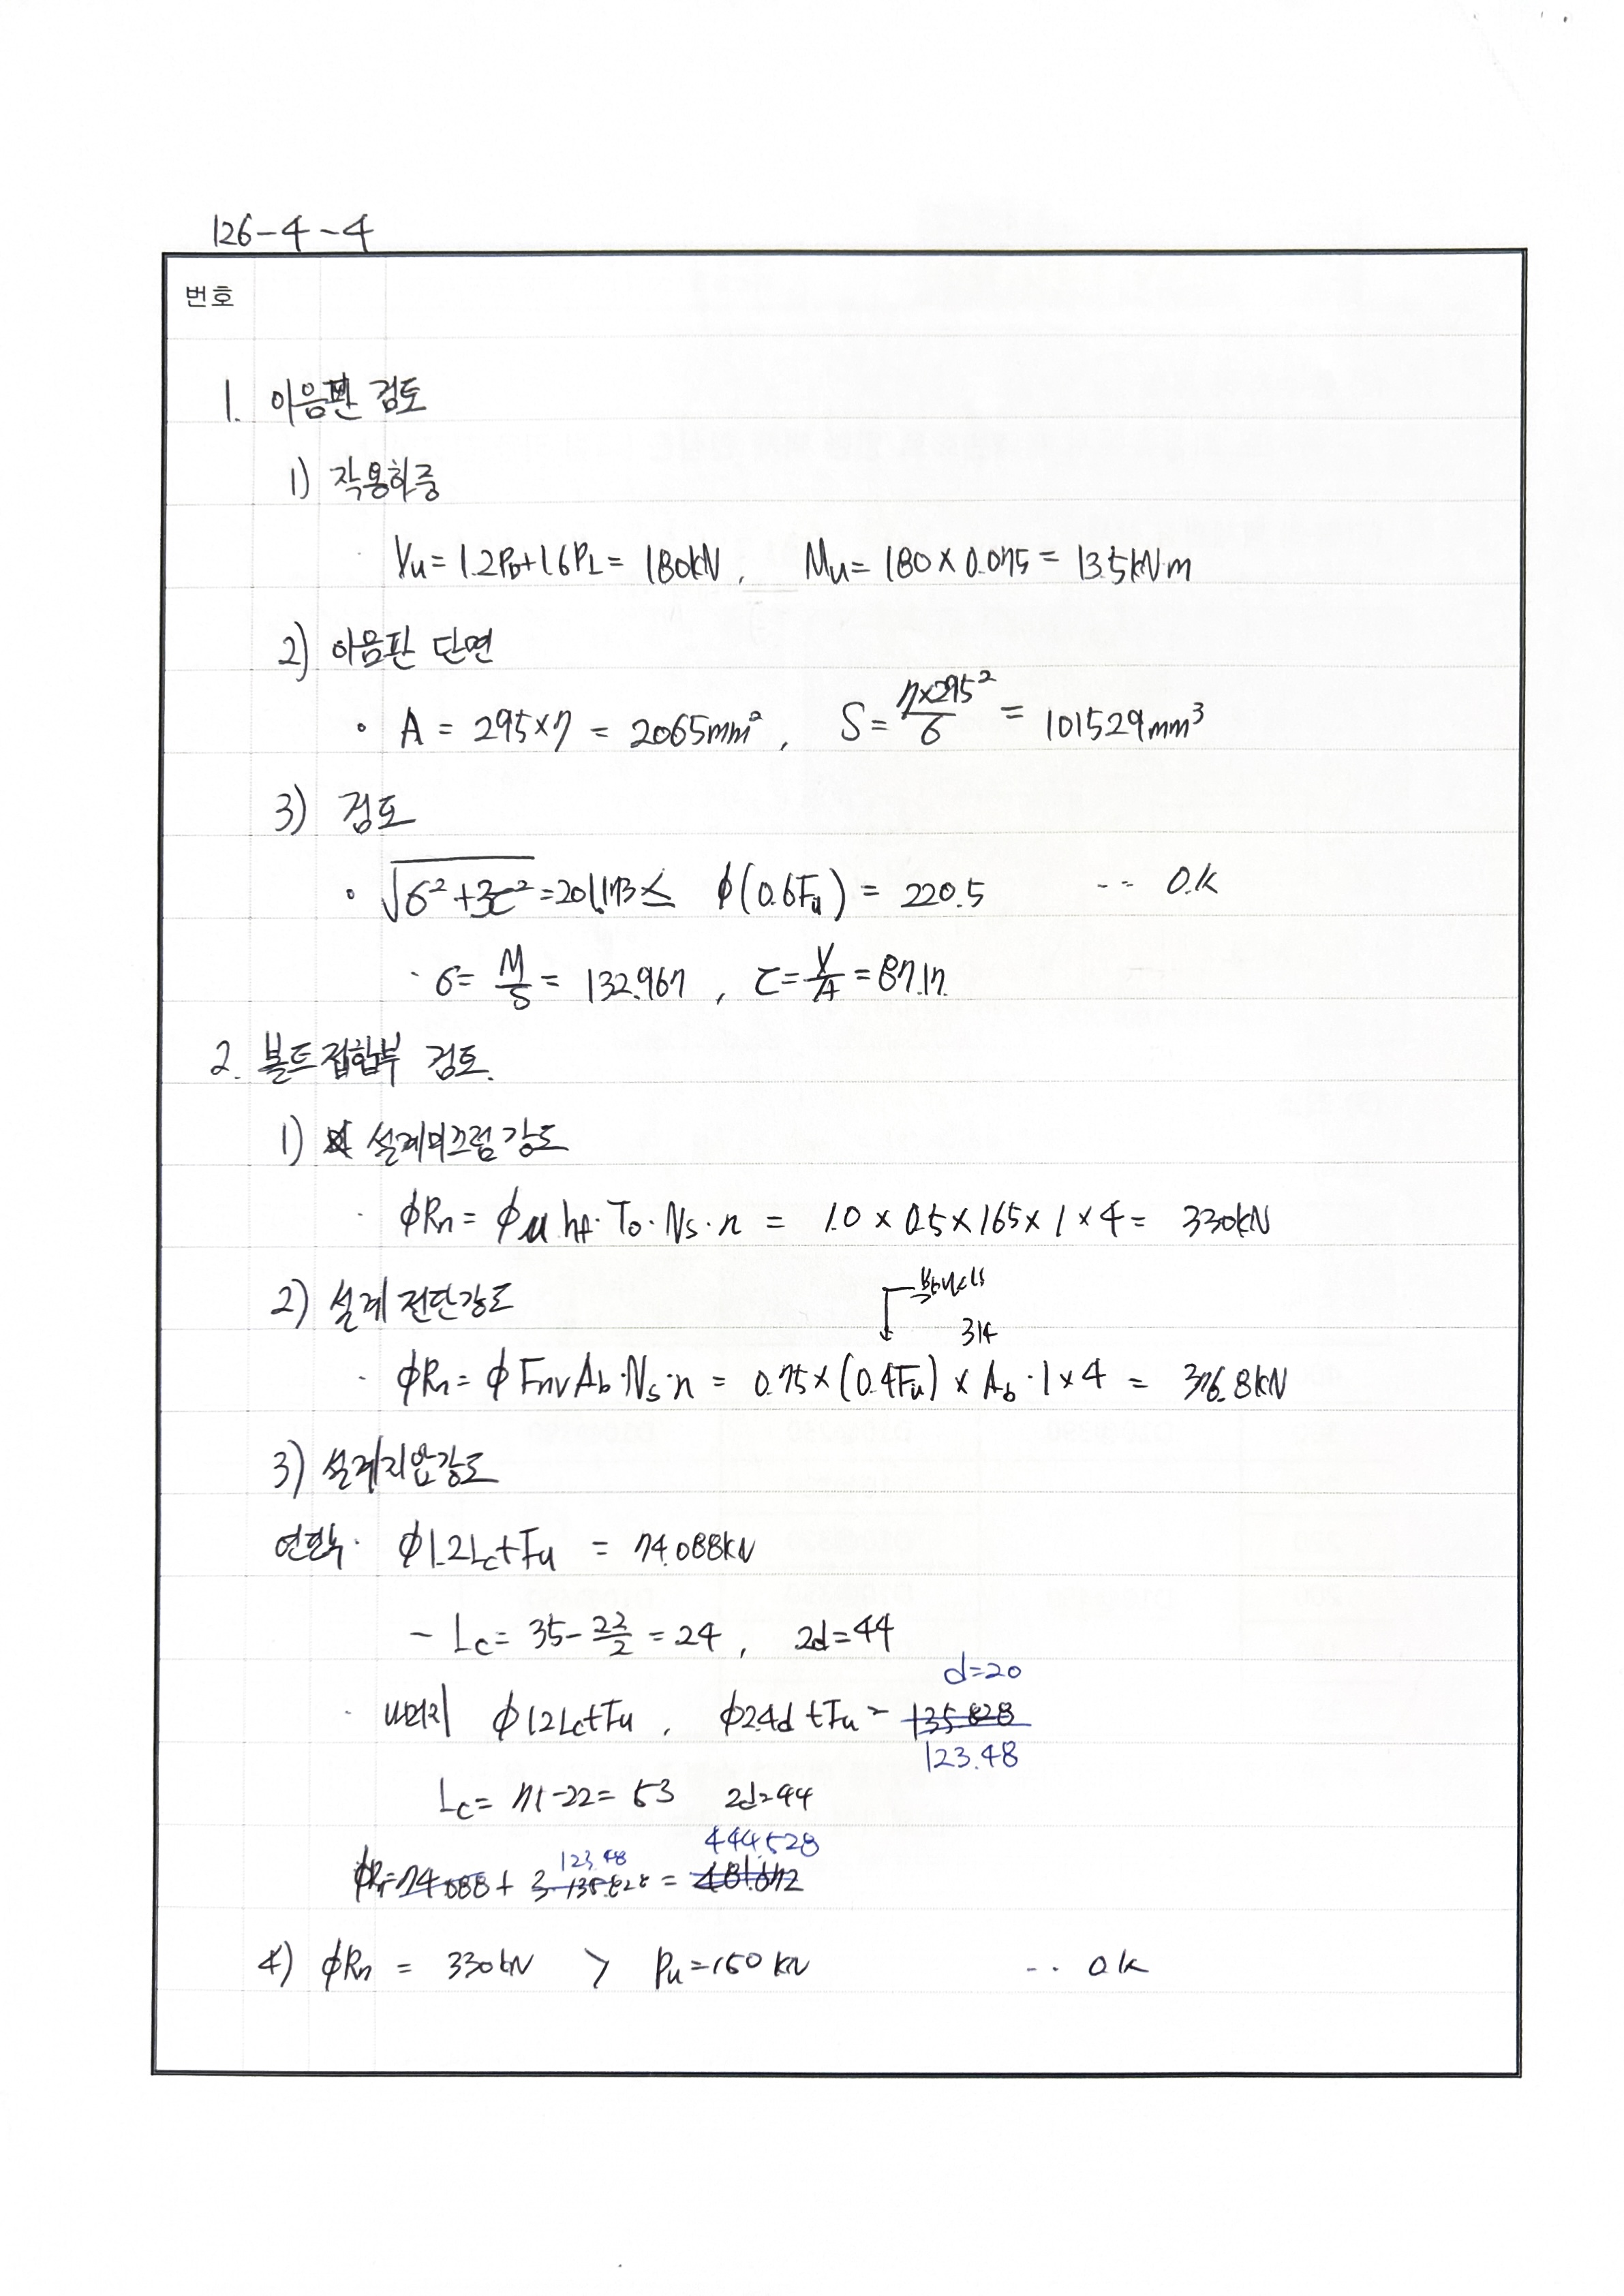 126-4-4
번호
1. 이음판 검토
1) 작용하중
· Vu = 1.2PD+1.6PL = 180kN, Mu = 180 × 0.075 = 13.5kN·m
2) 이음판 단면
∘ A = 295×7 = 2065mm², S = 7×295²/6 = 101529mm³
3) 검토
∘ √(σ²+3τ²) = 201.173 ≤ ϕ(0.6Fu) = 220.5 -- O.K
· σ = M/S = 132.967, τ = V/A = 87.17.
2. 볼트접합부 검토.
1) 설계미끄럼강도
· ϕRn = ϕμ hf·To·Ns·n = 1.0 × 0.5 × 165 × 1 × 4 = 330kN
2) 설계전단강도
314
· ϕRn = ϕ Fnv Ab·Ns·n = 0.75 × (0.4Fu) × Ab·1 × 4 = 376.8kN
3) 설계지압강도
연단부· ϕ1.2LctFu = 74.088kN
- Lc = 35 - 22/2 = 24, 2d = 44
d=20
· 나머지 ϕ1.2LctFu, ϕ2.4d tFu = 135.828
123.48
Lc = 75-22 = 53 2d=44
123.48 444.528
ϕRn = 74.088 + 3·135.828 = 481.572
4) ϕRn = 330kN > Pu = 150 kN -- O.K